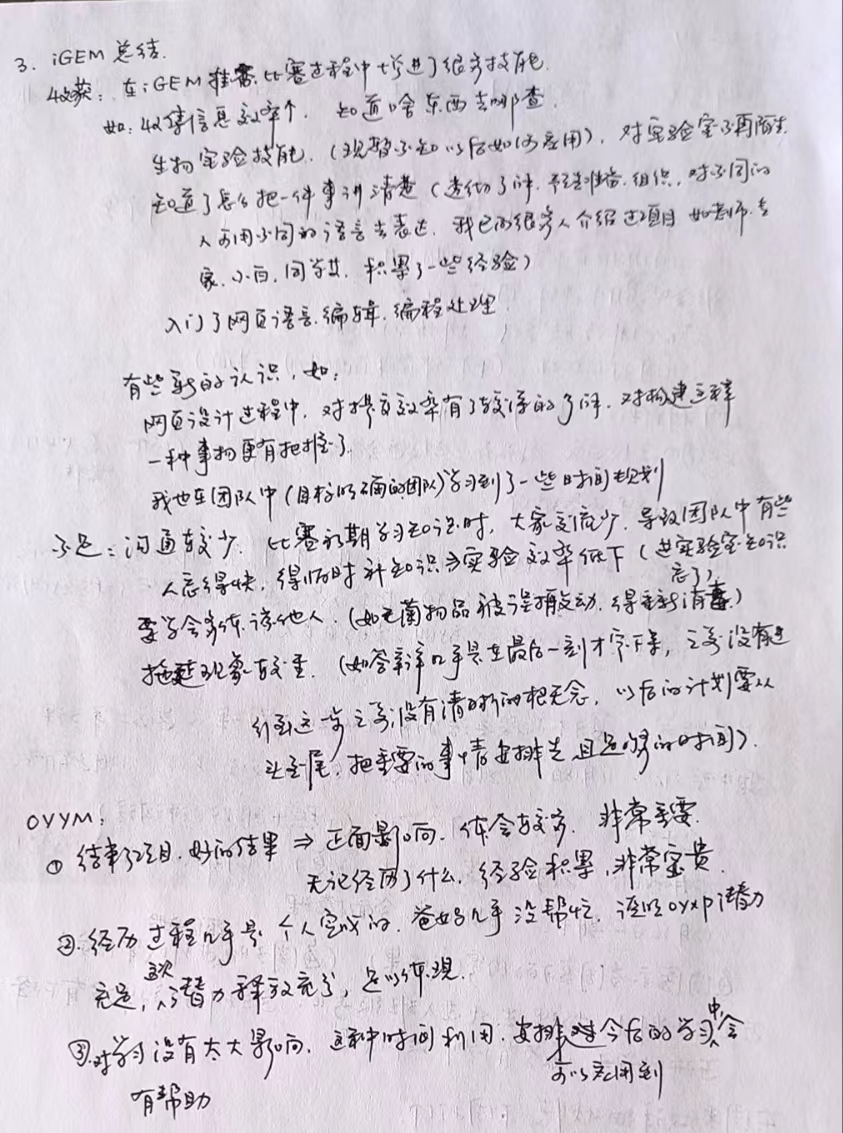 3. iGEM 总结.
收获: 在iGEM 比赛过程中增进了很多技能.
如: 收集信息效率个. 知道啥东西去哪查.
生物实验技能.(现暂不知以后如何应用). 对实验室不再陌生
知道了怎么把一件事讲清楚(透彻了解. 予先准备. 组织. 对不同的
人可用不同的语言去表达. 我已向很多人介绍过项目 如老师.专
家.小白.同学等. 积累了一些经验)
入门了网页语言.编辑.编程处理.
有些新的认识,如:
网页设计过程中. 对提高效率有了较深的了解. 对构建这样
一种事物更有把握了.
我也在团队中(目标明确的团队)学习到了一些时间规划
不足: 沟通较少. 比赛初期学习知识时, 大家交流少. 导致团队中有些
人忘得快. 得临时补知识⇒实验效率低下(进实验室知识
忘了)
要学会多体谅他人.(如无菌物品被误拥动. 得重新消毒.)
拖延现象较重.(如答辩几乎是在最后一刻才定下来, 之前没有进
行到这一步之前没有清晰的概念. 以后的计划要从
头到尾, 把重要的事情安排先且足够的时间).
OYYM:
① 结束项目. 好的结果 ⇒ 正面影响. 体会较多. 非常重要.
无论经历了什么. 经验积累. 非常宝贵.
②. 经历过程几乎是个人完成的. 爸妈几乎没帮忙. 证明oyxp潜力
充足, 这次潜力释放充分, 足以体现.
③.对学习没有太大影响. 这种时间利用. 安排 对今后的学习中会
可以应用到
有帮助